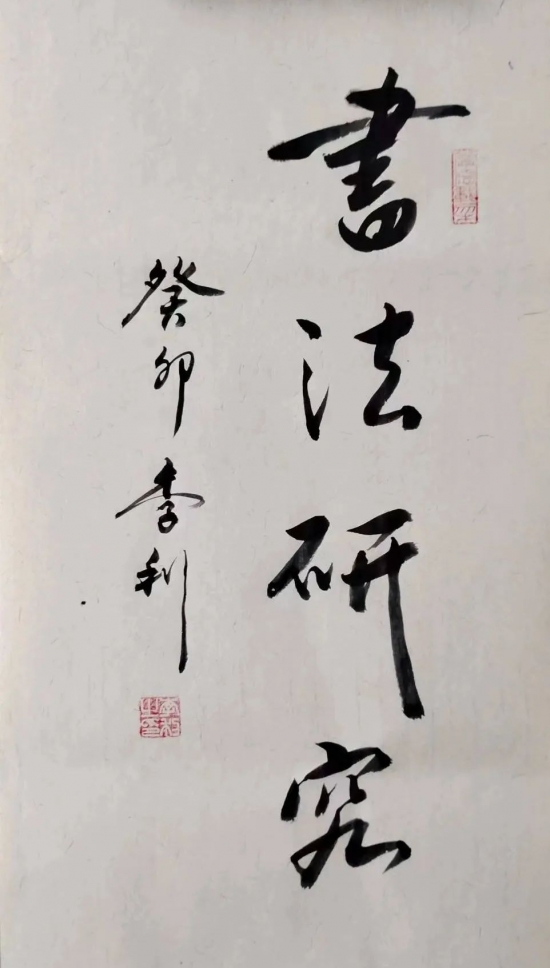 書法研究
癸卯 李利